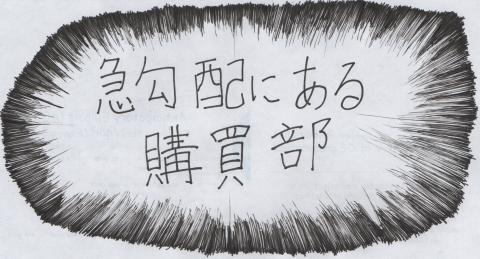 急勾配にある
購買部